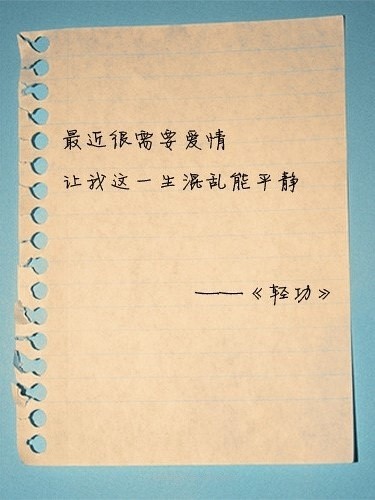 最近很需要爱情
让我这一生混乱能平静
——《轻功》